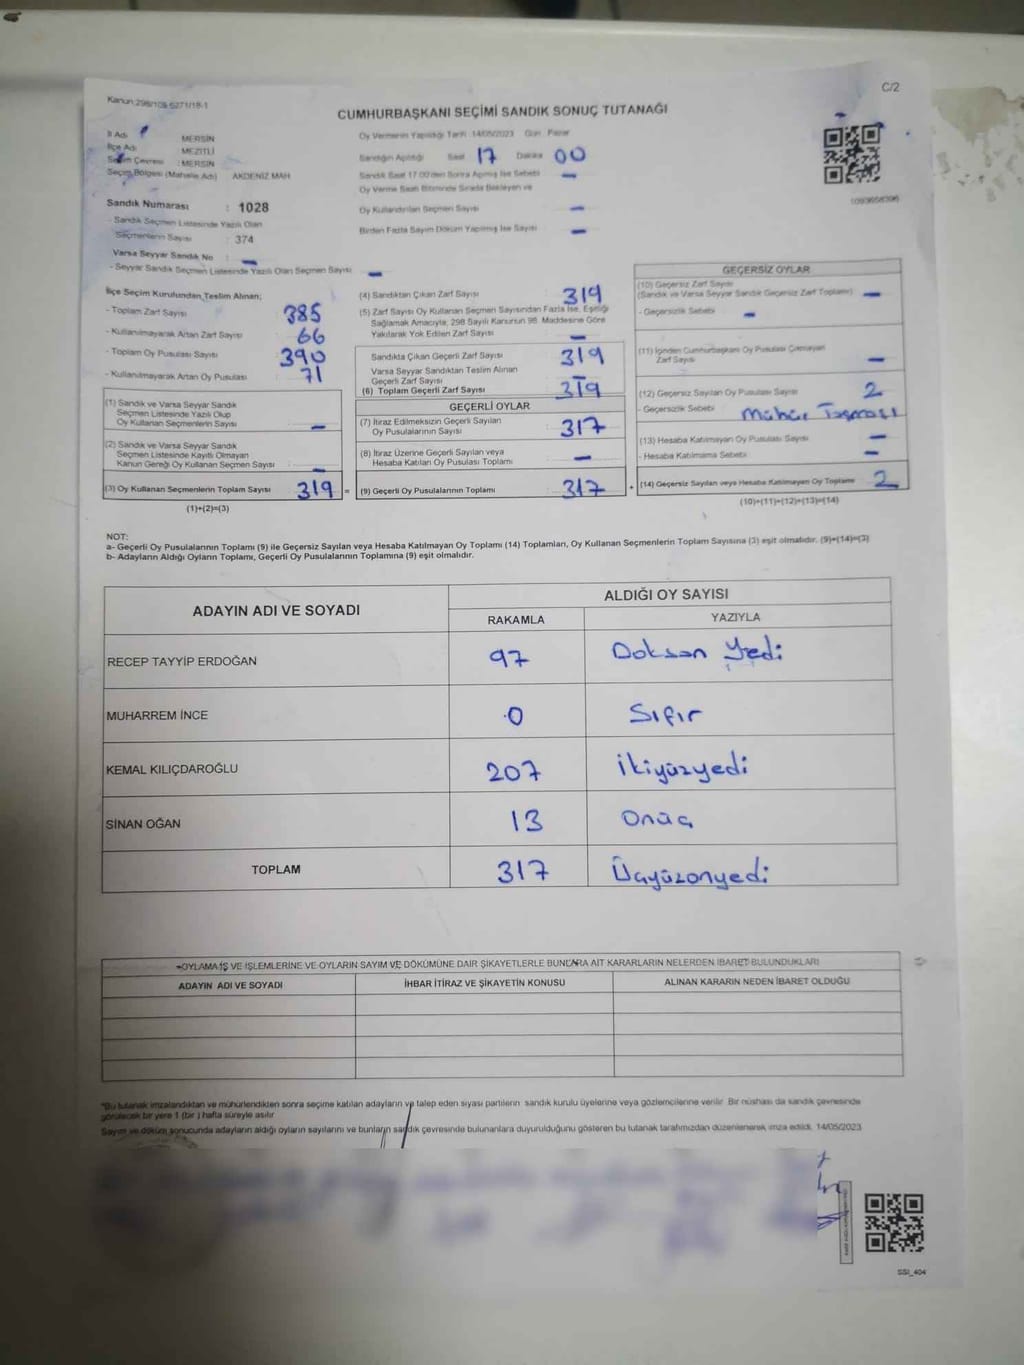 Kanun:298/105-6271/18-1
C/2
CUMHURBAŞKANI SEÇİMİ SANDIK SONUÇ TUTANAĞI
İl Adı : MERSİN
İlçe Adı : MEZİTLİ
Seçim Çevresi : MERSİN
Seçim Bölgesi (Mahalle Adı) AKDENİZ MAH
Sandık Numarası : 1028
- Sandık Seçmen Listesinde Yazılı Olan
Seçmenlerin Sayısı : 374
Varsa Seyyar Sandık No : -
- Seyyar Sandık Seçmen Listesinde Yazılı Olan Seçmen Sayısı -
Oy Vermenin Yapıldığı Tarih :14/05/2023 Gün : Pazar
Sandığın Açıldığı Saat 17 Dakika 00
Sandık Saat 17:00'den Sonra Açılmış İse Sebebi -
Oy Verme Saati Bitiminde Sırada Bekleyen ve
Oy Kullandırılan Seçmen Sayısı -
Birden Fazla Sayım Döküm Yapılmış İse Sayısı -
İlçe Seçim Kurulundan Teslim Alınan;
- Toplam Zarf Sayısı 385
- Kullanılmayarak Artan Zarf Sayısı 66
- Toplam Oy Pusulası Sayısı 390
- Kullanılmayarak Artan Oy Pusulası 71
(1) Sandık ve Varsa Seyyar Sandık
Seçmen Listesinde Yazılı Olup
Oy Kullanan Seçmenlerin Sayısı -
(2) Sandık ve Varsa Seyyar Sandık
Seçmen Listesinde Kayıtlı Olmayan
Kanun Gereği Oy Kullanan Seçmen Sayısı -
(3) Oy Kullanan Seçmenlerin Toplam Sayısı 319 =
(1)+(2)=(3)
(4) Sandıktan Çıkan Zarf Sayısı 319
(5) Zarf Sayısı Oy Kullanan Seçmen Sayısından Fazla İse, Eşitliği
Sağlamak Amacıyla, 298 Sayılı Kanunun 98. Maddesine Göre
Yakılarak Yok Edilen Zarf Sayısı -
Sandıkta Çıkan Geçerli Zarf Sayısı 319
Varsa Seyyar Sandıktan Teslim Alınan
Geçerli Zarf Sayısı -
(6) Toplam Geçerli Zarf Sayısı 319
GEÇERLİ OYLAR
(7) İtiraz Edilmeksizin Geçerli Sayılan
Oy Pusulalarının Sayısı 317
(8) İtiraz Üzerine Geçerli Sayılan veya
Hesaba Katılan Oy Pusulası Toplamı -
(9) Geçerli Oy Pusulalarının Toplamı 317 +
GEÇERSİZ OYLAR
(10) Geçersiz Zarf Sayısı
(Sandık ve Varsa Seyyar Sandık Geçersiz Zarf Toplamı) -
- Geçersizlik Sebebi -
(11) İçinden Cumhurbaşkanı Oy Pusulası Çıkmayan
Zarf Sayısı -
(12) Geçersiz Sayılan Oy Pusulası Sayısı 2
- Geçersizlik Sebebi Mühür Taşması
(13) Hesaba Katılmayan Oy Pusulası Sayısı -
- Hesaba Katılmama Sebebi -
(14) Geçersiz Sayılan veya Hesaba Katılmayan Oy Toplamı 2
(10)+(11)+(12)+(13)=(14)
NOT:
a- Geçerli Oy Pusulalarının Toplamı (9) ile Geçersiz Sayılan veya Hesaba Katılmayan Oy Toplamı (14) Toplamları, Oy Kullanan Seçmenlerin Toplam Sayısına (3) eşit olmalıdır. (9)+(14)=(3)
b- Adayların Aldığı Oyların Toplamı, Geçerli Oy Pusulalarının Toplamına (9) eşit olmalıdır.
ADAYIN ADI VE SOYADI ALDIĞI OY SAYISI
RAKAMLA YAZIYLA
RECEP TAYYİP ERDOĞAN 97 Doksan Yedi
MUHARREM İNCE 0 Sıfır
KEMAL KILIÇDAROĞLU 207 ikiyüzyedi
SİNAN OĞAN 13 Onüç
TOPLAM 317 Üçyüzonyedi
OYLAMA İŞ VE İŞLEMLERİNE VE OYLARIN SAYIM VE DÖKÜMÜNE DAİR ŞİKAYETLERLE BUNLARA AİT KARARLARIN NELERDEN İBARET BULUNDUKLARI
ADAYIN ADI VE SOYADI İHBAR İTİRAZ VE ŞİKAYETİN KONUSU ALINAN KARARIN NEDEN İBARET OLDUĞU
*Bu tutanak imzalandıktan ve mühürlendikten sonra seçime katılan adayların ve talep eden siyasi partilerin sandık kurulu üyelerine veya gözlemcilerine verilir. Bir nüshası da sandık çevresinde
görülecek bir yere 1 (bir ) hafta süreyle asılır
Sayım ve döküm sonucunda adayların aldığı oyların sayılarını ve bunların sandık çevresinde bulunanlara duyurulduğunu gösteren bu tutanak tarafımızdan düzenlenerek imza edildi. 14/05/2023
SSI_404